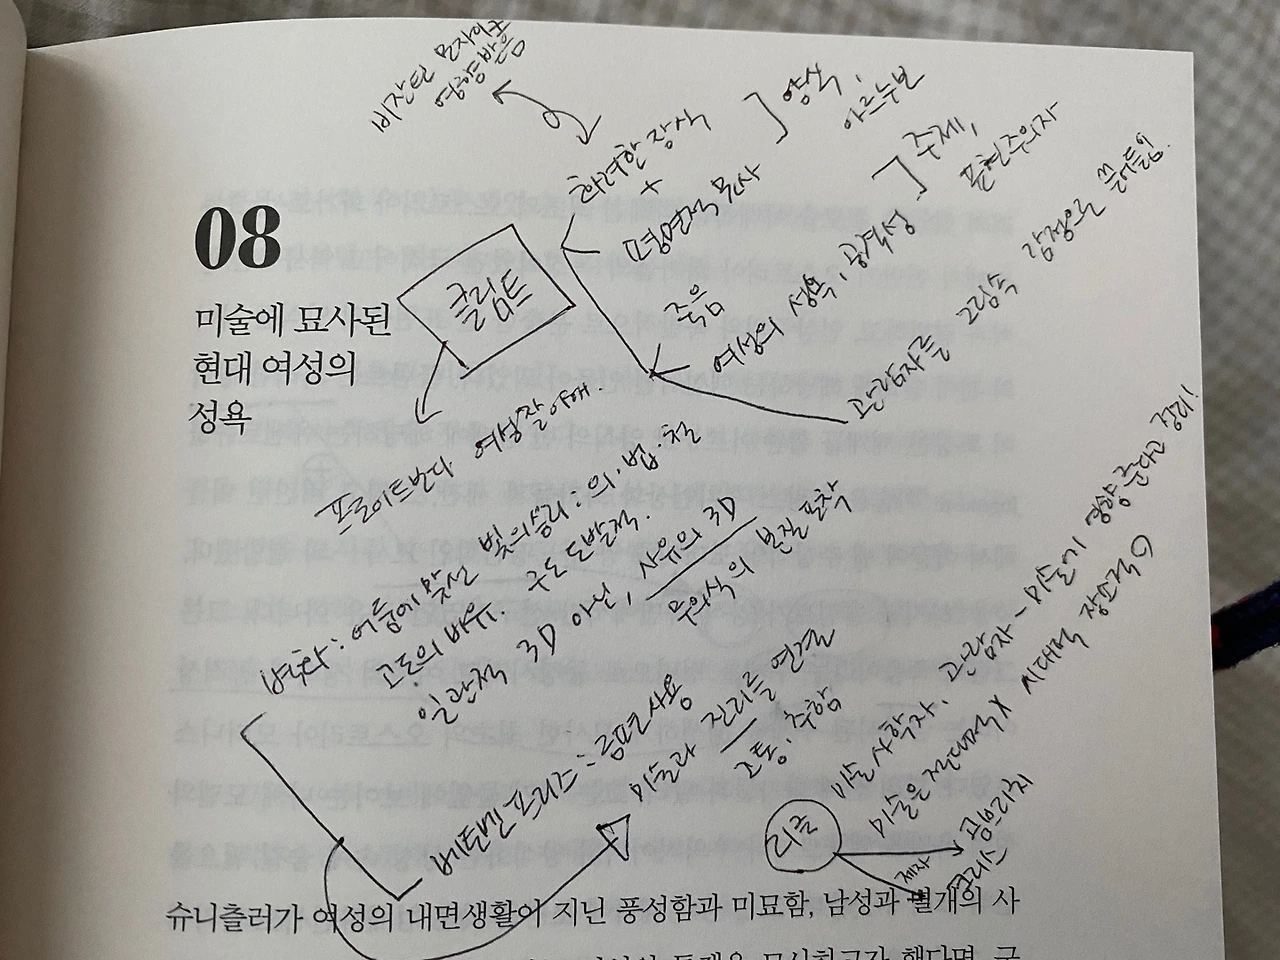 비잔틴 모자이크
영향받음
화려한 장식
+
평면적 묘사
양식,
아르누보
주제,
표현주의자
08
미술에 묘사된
현대 여성의
성욕
클림트
죽음
여성의 성욕, 공격성
관람자를 그림속 감정으로 끌어들임.
프로이트보다 여성잘이해.
벽화: 어둠에 맞선 빛의승리: 의·법·철
고통의 바유. 구도 도발적.
일관적 3D 아닌, 사유의 3D
무의식의 본질 포착
베토벤 프리즈: 룸펜사용
미술과 진리를 연결
고통, 추함
리글
미술 사학자. 관람자 - 미술에 영향 준다고 정리!
미술은 절대적 X 시대적 장소적 O
곰브리치
제자
크리스
슈니츨러가 여성의 내면생활이 지닌 풍성함과 미묘함, 남성과 별개의 사